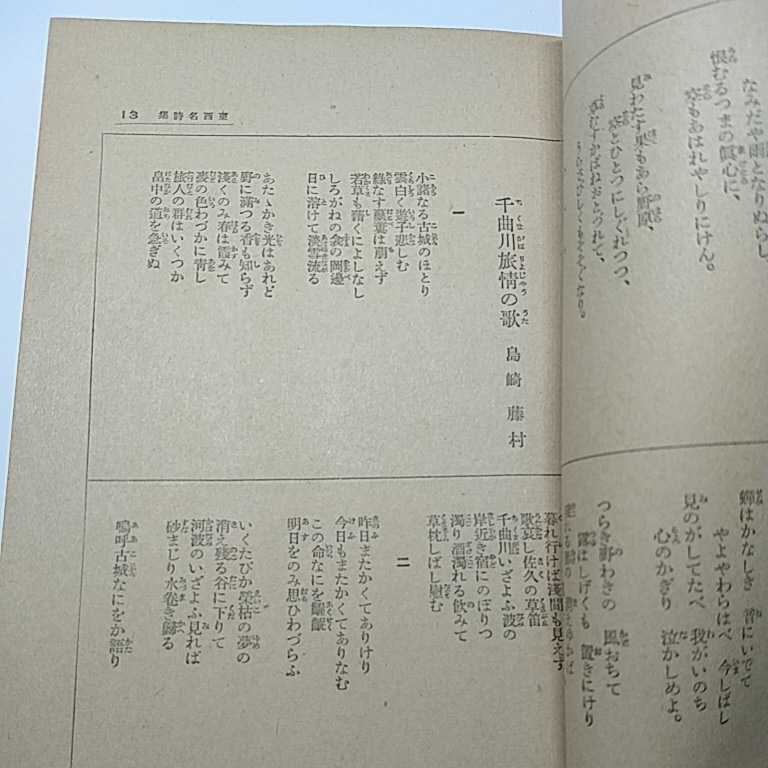 なみだや雨となりぬらし
恨むるつまの眞心に、
空もあはれやしりにけん。
見わたす果もあら野原、
空とひとつにしぐれつつ、
蟬はかなしき 昔にいでて
やよやわらはべ 今しばし
見のがしてたべ 我がいのち
心のかぎり 泣かしめよ。
つらき野わきの 風おちて
露はしげくも 置きにけり
13 東西名詩集
千曲川旅情の歌 島崎藤村
一
小諸なる古城のほとり
雲白く遊子悲しむ
綠なす蘩蔞は萌えず
若草も藉くによしなし
しろがねの衾の岡邊
日に溶けて淡雪流る
あたゝかき光はあれど
野に滿つる香も知らず
淺くのみ春は霞みて
麥の色わづかに靑し
旅人の群はいくつか
畠中の道を急ぎぬ
暮れ行けば淺間も見えず
歌哀し佐久の草笛
千曲川いざよふ波の
岸近き宿にのぼりつ
濁り酒濁れる飮みて
草枕しばし慰む
二
昨日またかくてありけり
今日もまたかくてありなむ
この命なにを齷齪
明日をのみ思ひわづらふ
いくたびか榮枯の夢の
消え殘る谷に下りて
河波のいざよふ見れば
砂まじり水卷き歸る
嗚呼古城なにをか語り